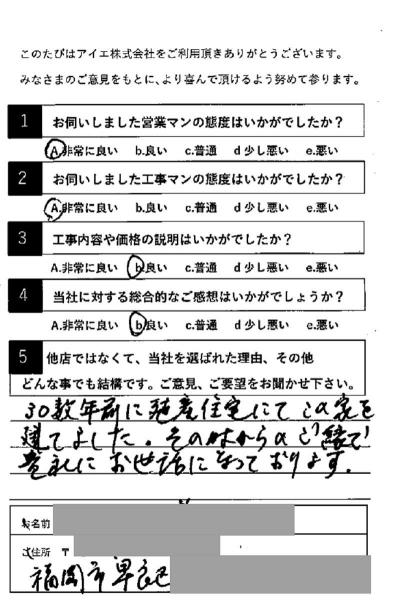 このたびはアイエ株式会社をご利用頂きありがとうございます。
みなさまのご意見をもとに、より喜んで頂けるよう努めて参ります。
1 お伺いしました営業マンの態度はいかがでしたか?
A.非常に良い b.良い c.普通 d 少し悪い e.悪い
2 お伺いしました工事マンの態度はいかがでしたか?
A.非常に良い b.良い c.普通 d 少し悪い e.悪い
3 工事内容や価格の説明はいかがでしたか?
A.非常に良い b.良い c.普通 d 少し悪い e.悪い
4 当社に対する総合的なご感想はいかがでしょうか?
A.非常に良い b.良い c.普通 d 少し悪い e.悪い
5 他店ではなくて、当社を選ばれた理由、その他
どんな事でも結構です。ご意見、ご要望をお聞かせ下さい。
30数年前に殖産住宅にてこの家を
建てました。その時からのご縁で
貴社にお世話になっております.
お名前
ご住所 〒
福岡市早良区